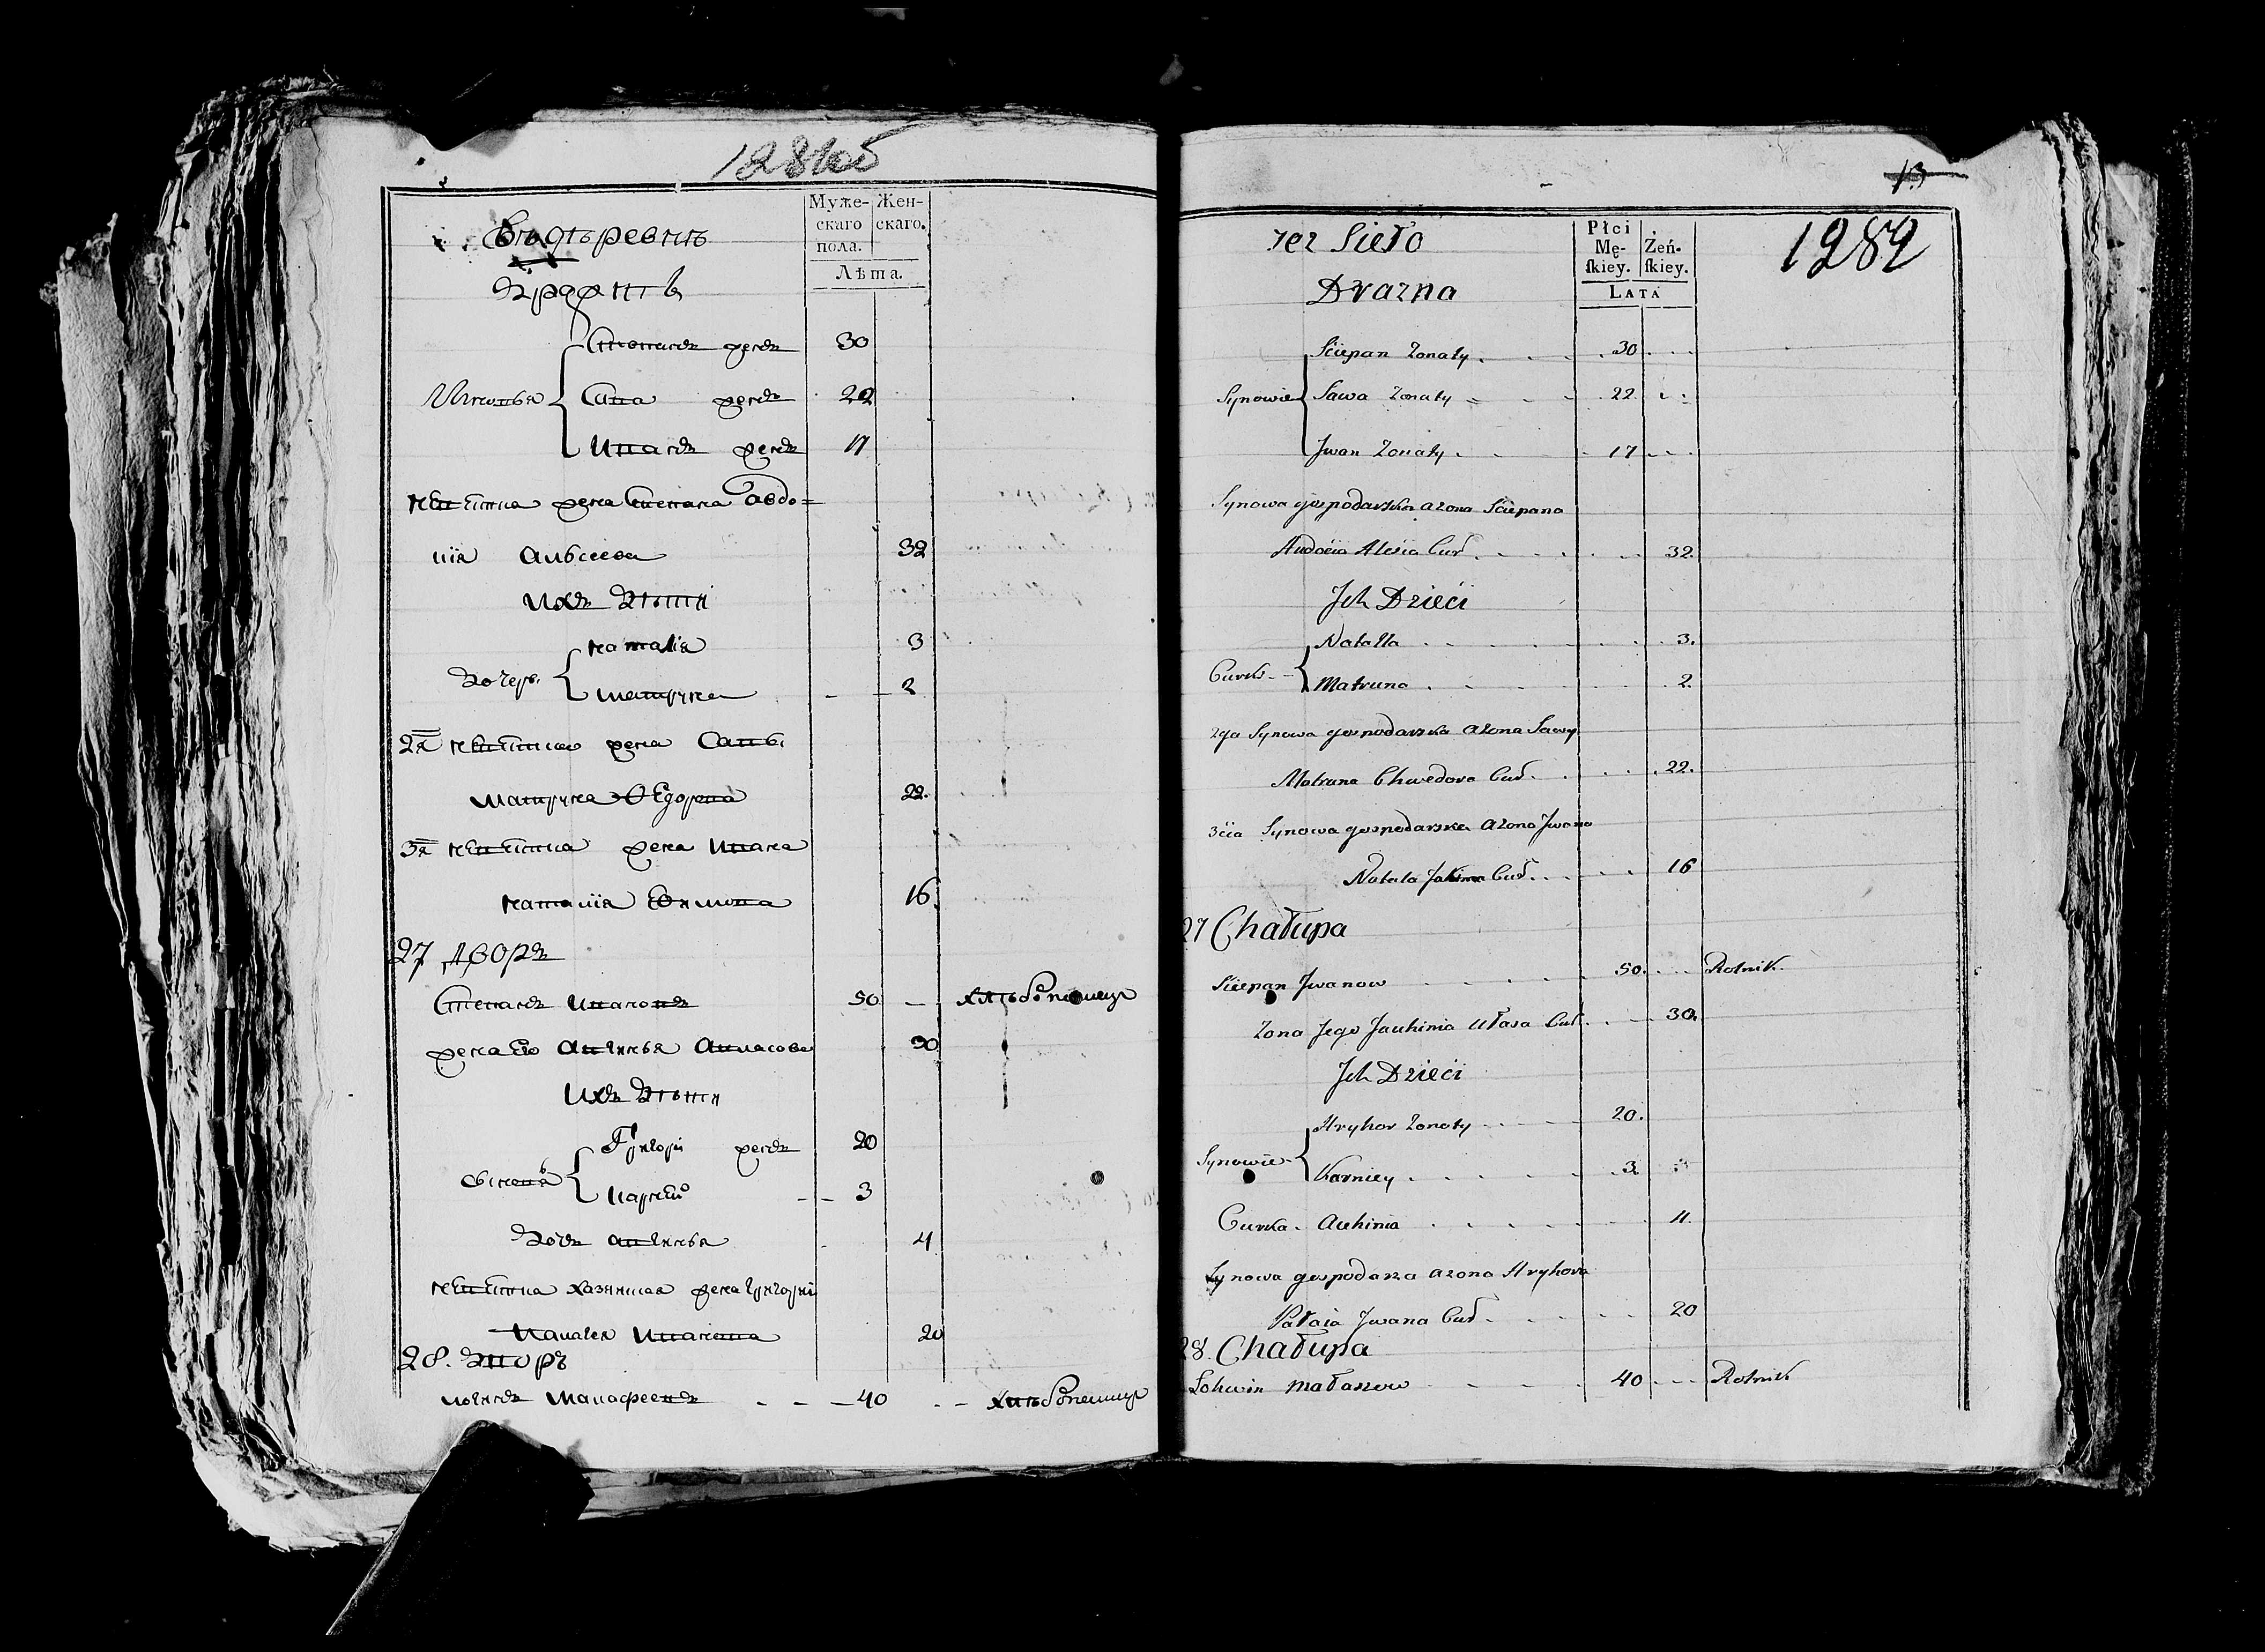 1281об
Муже-
скаго
пола.
Жен-
скаго.
Лѣта.
Въ деревнѣ
Дражнѣ
Сыновья
Степанъ женъ 30
Сава женъ 22
Иванъ женъ 17
невѣстка жена Степана Авдо=
тія Алѣсеева 32
Ихъ Дѣти
Дочери
Наталія 3
Матруна 2
2я невѣстка жена Савы
Матруна Ѳедорова 22.
3я невѣстка жена Ивана
Наталія Евимова 16.
27 Дворъ
Степанъ Ивановъ 50 — хлѣбопашецъ
жена Его Авгинья Апласова 30
Ихъ Дѣти
Сыновья
Григорій женъ 20
Карней 3
Дочъ Авгинья 4
невѣстка хазяиная жена Григорія
Палагея Иванова 20
28. Дворъ
Логинъ Малафеевъ 40 хлѣбопашецъ
13
1282
Płci
Mę-
ſkiey.
Żeń-
ſkiey.
LATA
Tez Sieło
Drazna
Synowie
Sciepan Zonaty 30
Sawa Zonaty 22
Jwan Zonaty 17
Synowa gospodarska a zona Sciepana
Audocia Alesia Cur 32.
Jch Dzieci
Curki
Natalla 3.
Matruna 2.
2ga Synowa gospodarska a zona Sawy
Matruna Chwedora Cur. 22.
3cia Synowa gospodarska a zona Jwana
Natala Jakima Cur. 16
27 Chałupa
Sciepan Jwanow 50. Rolnik
Zona Jego Jauhinia Ułasa Cur. 30.
Jch Dzieci
Synowie
Hryhor Zonaty 20.
Karniey 3
Curka Auhinia 4.
Synowa gospodarza a zona Hryhora
Pałaia Jwana Cur. 20
28. Chałupa
Lohwin Małaszow 40 Rolnik